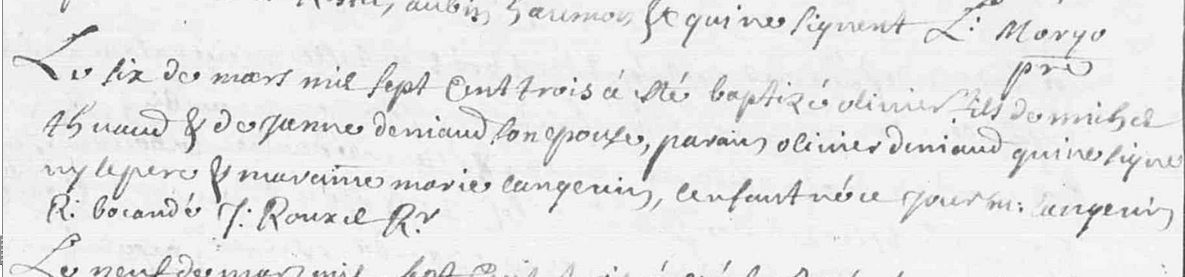 aubin haumon & qui ne signent L: Moryo
pre
Le six de mars mil sept cent trois á été baptizé olivier fils de michel
thuaud & de janne deniaud son epouse, parain olivier deniaud qui ne signe
ny le pere & maraine marie langevin, l'enfant né ce jour m: langevin
R: bocandé J: Rouxel Rr
Le neuf de mars mil sept cent